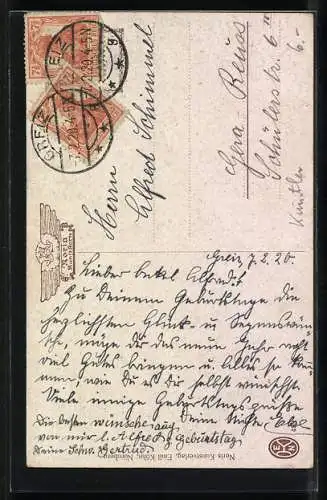 GREIZ
7.2.20.4-5N
Herrn
Alfred Schimmel
Gera-Reuss
Schülerstr. 6 III
Künstler
6.-
Noris
Greiz 7.2.20.
Lieber Onkel Alfred!
Zu Deinem Geburtstage die
herzlichsten Glück- u. Segenswün-
sche, möge dir das neue Jahr recht
viel Gutes bringen u. Alles so kom-
men, wie du es dir selbst wünschst.
Viele innige Geburtstagsgrüße
Deine Nichte Else
Die besten wünsche auch
von mir l. Alfred z. Geburtstag
Deine Schw. Gertrud.
Noris Kunstverlag, Emil Köhn, Nürnberg